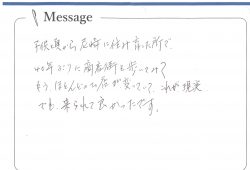 Message
子供頃から尼崎に住み育った所で、
40年ぶりに商店街を歩いてみ?
もう、ほとんどのお店が変っていて、これが現実
でも来られて良かったです。